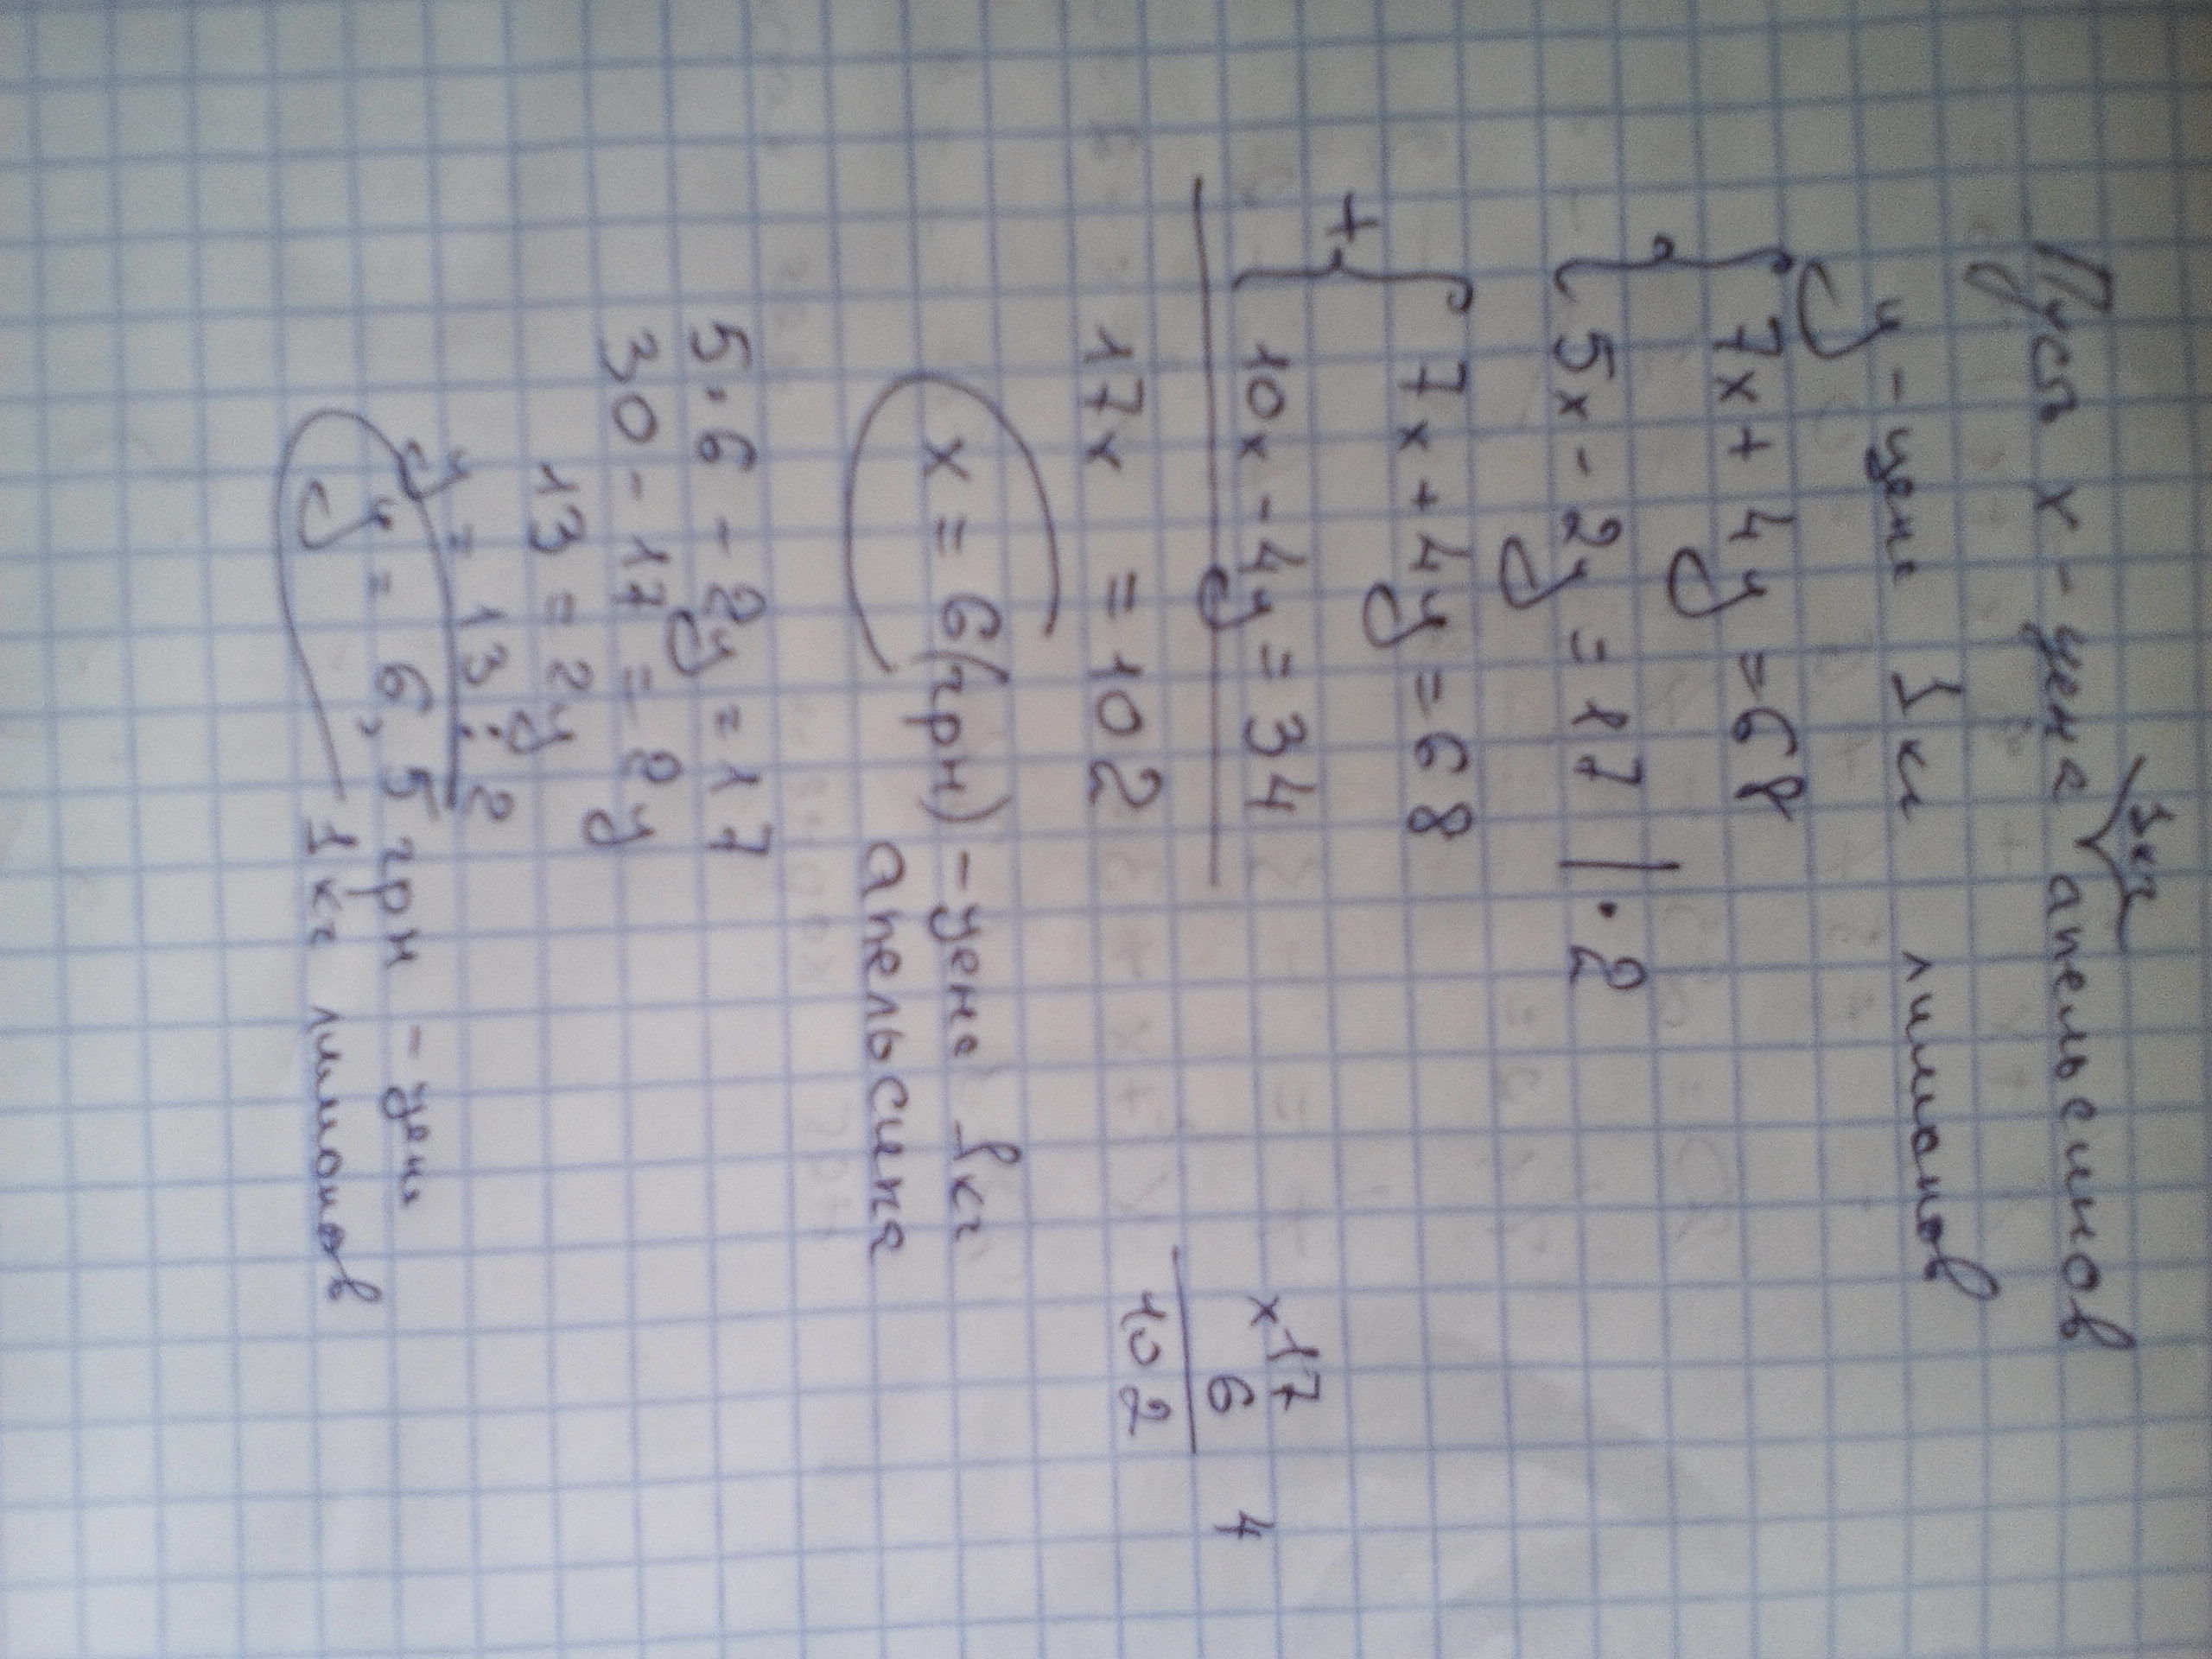 Пусть x - цена 1кг апельсинов
y - цена 1кг лимонов
7x + 4y = 68
5x - 2y = 17 | · 2
+ 7x + 4y = 68
10x - 4y = 34
17x = 102
x = 6 (грн) - цена 1кг
апельсина
5 · 6 - 2y = 17
30 - 17 = 2y
13 = 2y
y = 13 : 2
y = 6,5 грн - цена
1кг лимонов
x 17
6
102
4